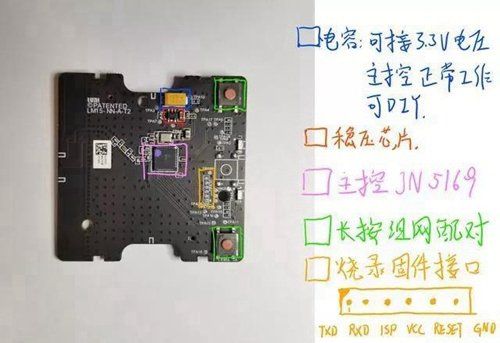 LUMI
©PATENTED
LM15-NN-A-T2
电容:可接3.3V电压
主控正常工作
可DIY.
稳压芯片.
主控JN5169
长按组网配对
烧录固件接口
TXD RXD ISP VCC RESET GND